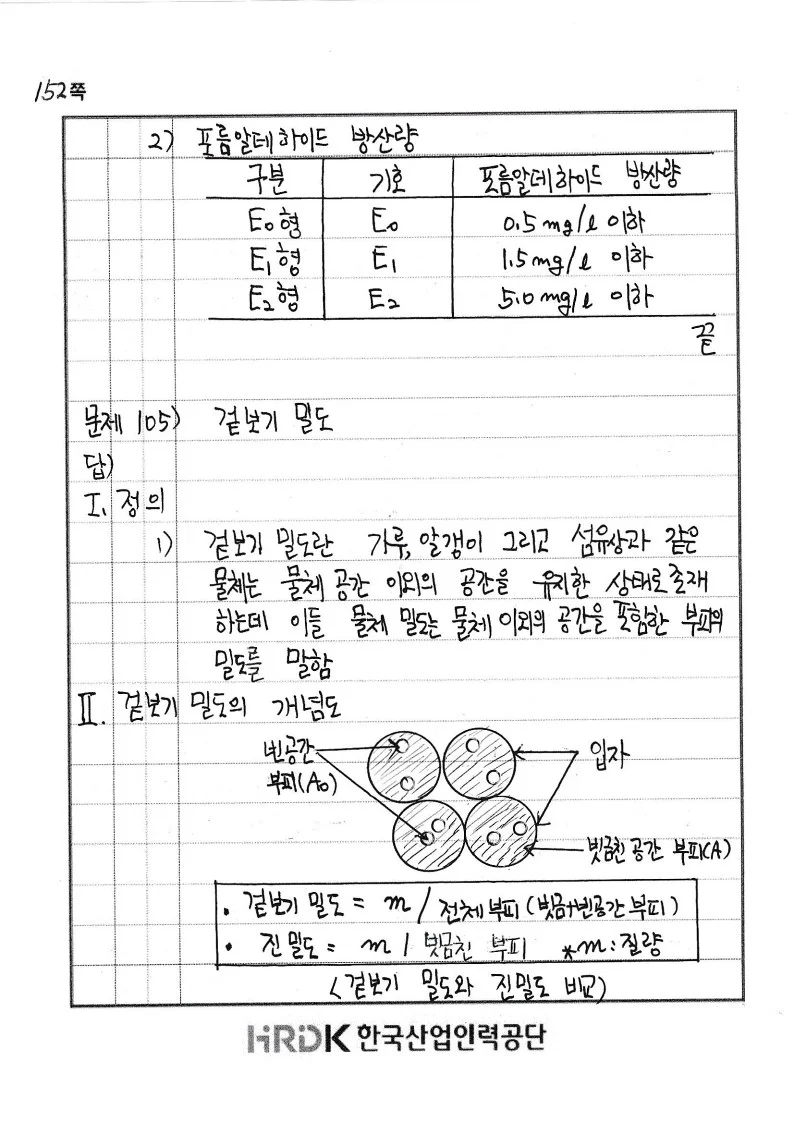 152쪽
2) 포름알데하이드 방산량
구분 기호 포름알데하이드 방산량
E₀형 E₀ 0.5mg/ℓ 이하
E₁형 E₁ 1.5mg/ℓ 이하
E₂형 E₂ 5.0mg/ℓ 이하
끝
문제 105) 겉보기 밀도
답)
I. 정의
1) 겉보기 밀도란 가루, 알갱이 그리고 섬유상과 같은
물체는 물체 공간 이외의 공간을 유지한 상태로 존재
하는데 이들 물체 밀도는 물체 이외의 공간을 포함한 부피의
밀도를 말함
II. 겉보기 밀도의 개념도
빈공간
부피(A₀)
입자
빗금친 공간 부피(A)
· 겉보기 밀도 = m / 전체 부피 (빗금+빈공간 부피)
· 진밀도 = m / 빗금친 부피 *m : 질량
<겉보기 밀도와 진밀도 비교>
HRDK 한국산업인력공단